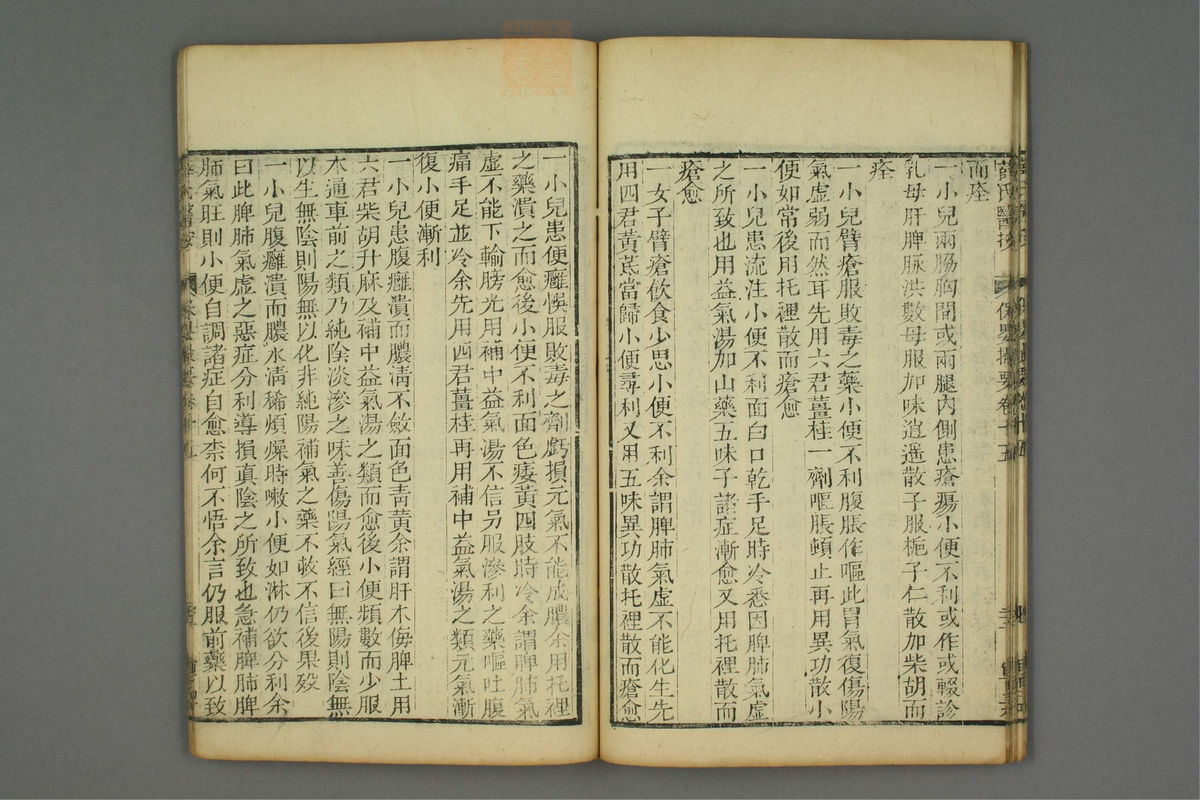 薛氏醫按 保嬰撮要卷十五
而痊
一小兒兩腸胸閒或兩腿內側患瘡瘍小便不利或作或輟診
乳母肝脾脉洪數母服加味逍遥散子服梔子仁散加柴胡而
痊
一小兒臂瘡服敗毒之藥小便不利腹脹作嘔此胃氣復傷陽
氣虛弱而然耳先用六君薑桂一劑嘔脹頓止再用異功散小
便如常後用托裡散而瘡愈
一小兒患流注小便不利面白口乾手足時冷悉因脾肺氣虛
之所致也用益氣湯加山藥五味子諸症漸愈又用托裡散而
瘡愈
一女子臂瘡飲食少思小便不利余謂脾肺氣虛不能化生先
用四君黃芪當歸小便尋利又用五味異功散托裡散而瘡愈
一小兒患便癰悞服敗毒之劑虧損元氣不能成膿余用托裡
之藥潰之而愈後小便不利面色痿黃四肢時冷余謂脾肺氣
虛不能下輸膀光用補中益氣湯不信另服滲利之藥嘔吐腹
痛手足並冷余先用四君薑桂再用補中益氣湯之類元氣漸
復小便漸利
一小兒患腹癰潰而膿淸不斂面色靑黃余謂肝木侮脾土用
六君柴胡升麻及補中益氣湯之類而愈後小便頻數而少服
木通車前之類乃純陰淡滲之味善傷陽氣經曰無陽則陰無
以生無陰則陽無以化非純陽補氣之藥不敢不信後果歿
一小兒腹癰潰而膿水淸稀煩燥時嗽小便如淋仍欲分利余
曰此脾肺氣虛之惡症分利導損眞陰之所致也急補脾肺脾
肺氣旺則小便自調諸症自愈柰何不悟余言仍服前藥以致
薛氏醫按